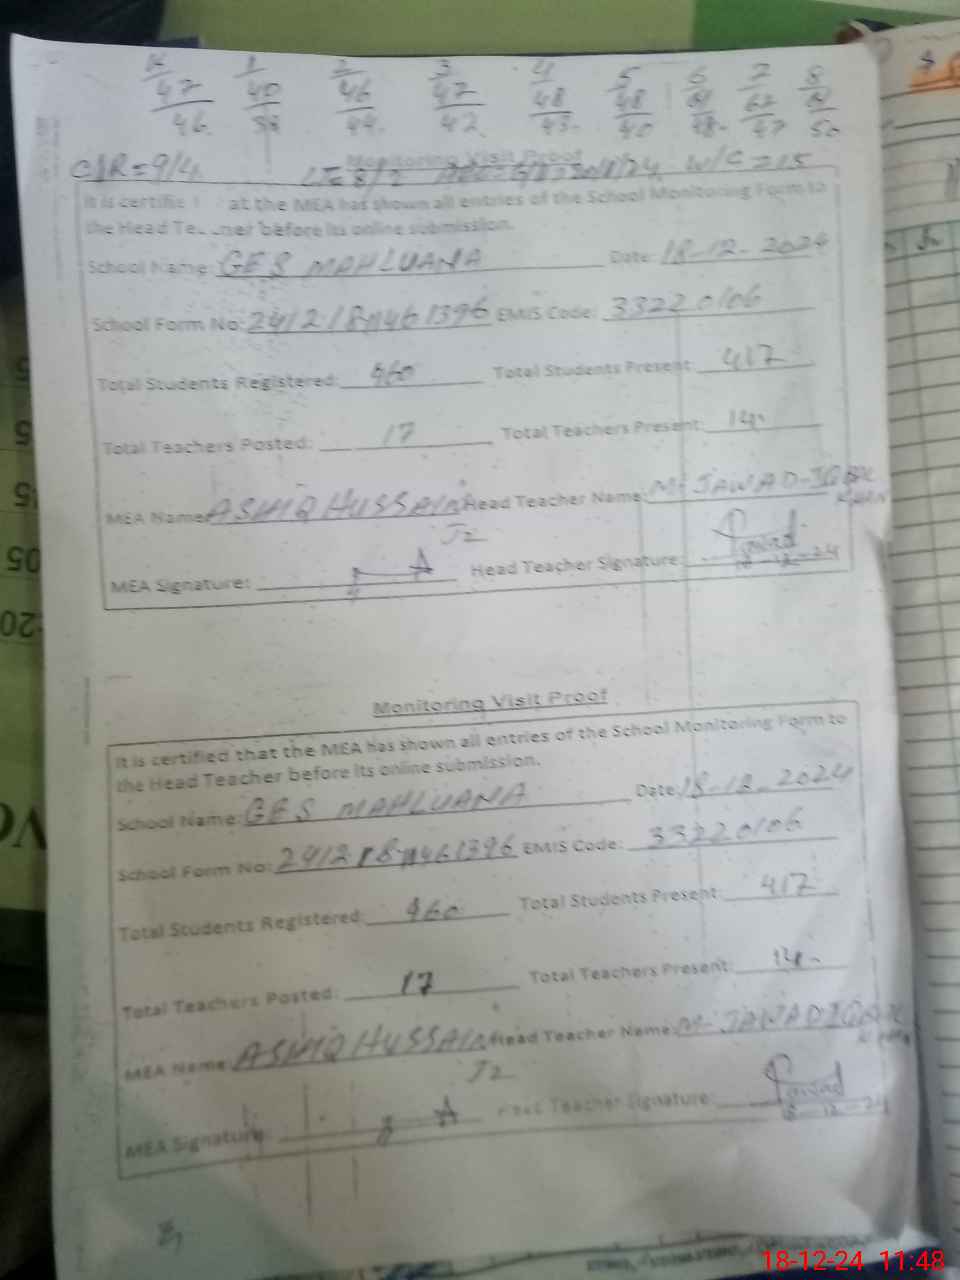 K 1 2 3 4 5 6 7 8
47 40 46 47 48 48 61 62 61
46 38 44 42 43 40 48 47 50
C/R = 9/4 LT = 8/2 W/C = 15
Monitoring Visit Proof
It is certifie at the MEA has shown all entries of the School Monitoring Form to
the Head Te ner before its online submission.
School Name: GES MAHLUANA Date: 18-12-2024
School Form No: EMIS Code: 33220106
Total Students Registered: 460 Total Students Present: 417
Total Teachers Posted: 17 Total Teachers Present: 14
MEA Name: ASHIQ HUSSAIN Head Teacher Name: M. JAWAD IQBAL
KHAN
J2
MEA Signature: Head Teacher Signature: Jawad
18-12-24
Monitoring Visit Proof
It is certified that the MEA has shown all entries of the School Monitoring Form to
the Head Teacher before its online submission.
School Name: GES MAHLUANA Date: 18-12-2024
School Form No: EMIS Code: 33220106
Total Students Registered: 460 Total Students Present: 417
Total Teachers Posted: 17 Total Teachers Present: 14
MEA Name: ASHIQ HUSSAIN Head Teacher Name: M. JAWAD IQBAL
KHAN
J2
MEA Signature: Head Teacher Signature: Jawad
18-12-24
18-12-24 11:48